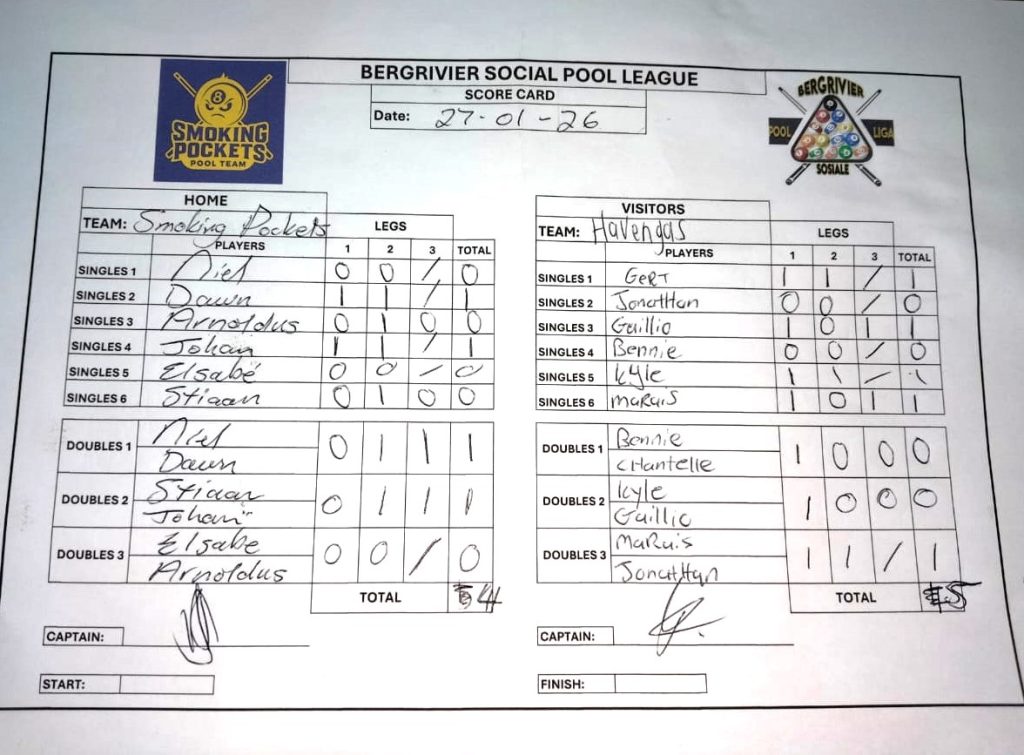 BERGRIVIER SOCIAL POOL LEAGUE
SCORE CARD
Date: 27-01-26
8
SMOKING
POCKETS
POOL TEAM
BERGRIVIER
POOL LIGA
SOSIALE
HOME
TEAM: Smoking Pockets LEGS
PLAYERS 1 2 3 TOTAL
SINGLES 1 Niel 0 0 / 0
SINGLES 2 Dawn 1 1 / 1
SINGLES 3 Arnoldus 0 1 0 0
SINGLES 4 Johan 1 1 / 1
SINGLES 5 Elsabé 0 0 / 0
SINGLES 6 Stiaan 0 1 0 0
DOUBLES 1 Niel 0 1 1 1
Dawn
DOUBLES 2 Stiaan 0 1 1 1
Johan
DOUBLES 3 Elsabe 0 0 / 0
Arnoldus
TOTAL 4
CAPTAIN:
START:
VISITORS
TEAM: Havengas LEGS
PLAYERS 1 2 3 TOTAL
SINGLES 1 GERT 1 1 / 1
SINGLES 2 JonatHan 0 0 / 0
SINGLES 3 Guillio 1 0 1 1
SINGLES 4 Bennie 0 0 / 0
SINGLES 5 Kyle 1 1 / 1
SINGLES 6 MaRuis 1 0 1 1
DOUBLES 1 Bennie 1 0 0 0
CHantelle
DOUBLES 2 Kyle 1 0 0 0
Guillio
DOUBLES 3 MaRuis 1 1 / 1
JonatHan
TOTAL 5
CAPTAIN:
FINISH: